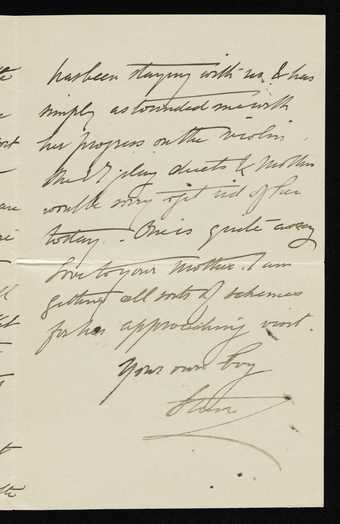 has been staying with us, & has
simply astounded me with
her progress on the violin.
She & I play duets & Mother
would be sorry to get rid of her
today. One is quite away
Love to your Mother. I am
getting all sorts of schemes
for her approaching visit.
Your own boy